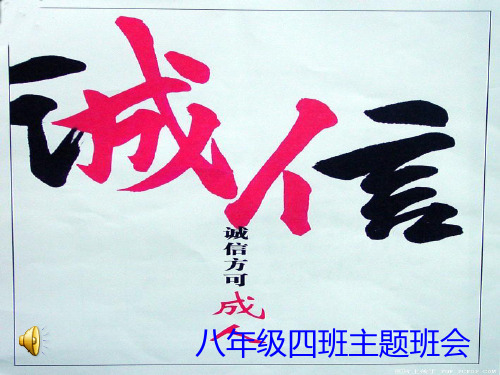 诚信
诚信方可
成人
八年级四班主题班会